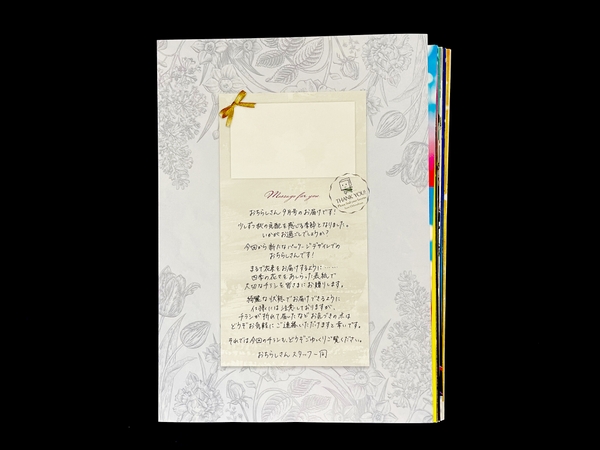 Message for you
THANK YOU!
おちらしさん9月号のお届けです！
少しずつ秋の気配を感じる季節となりました。
いかがお過ごしでしょうか？
今回から新たなパッケージデザインでの
おちらしさんです！
まるで花束をお届けするように……
四季の花々をあしらった表紙で
大切なチラシを皆さまにお贈りします。
綺麗な状態でお届けできるように
仕様には注意しておりますが、
チラシが折れて届いたなどお気づきの点は
どうぞお気軽にご連絡いただけますと幸いです。
それでは今回のチラシも、どうぞごゆっくりご覧ください。
おちらしさんスタッフ一同